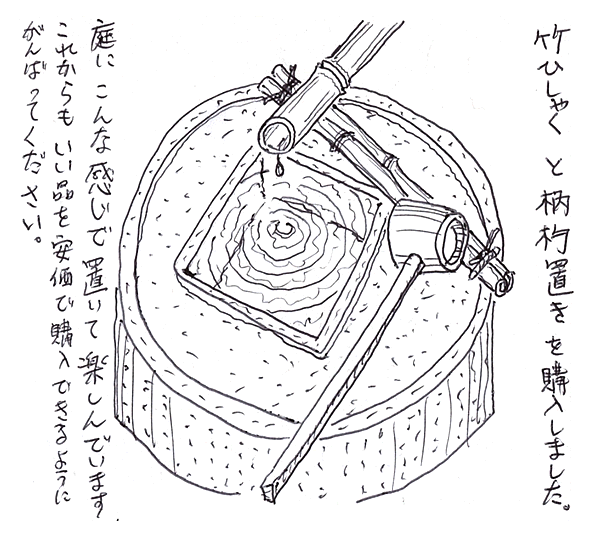 竹ひしゃくと柄杓置きを購入しました。
庭にこんな感じで置いて楽しんでいます.
これからもいい品を安価で購入できるように
がんばってください。